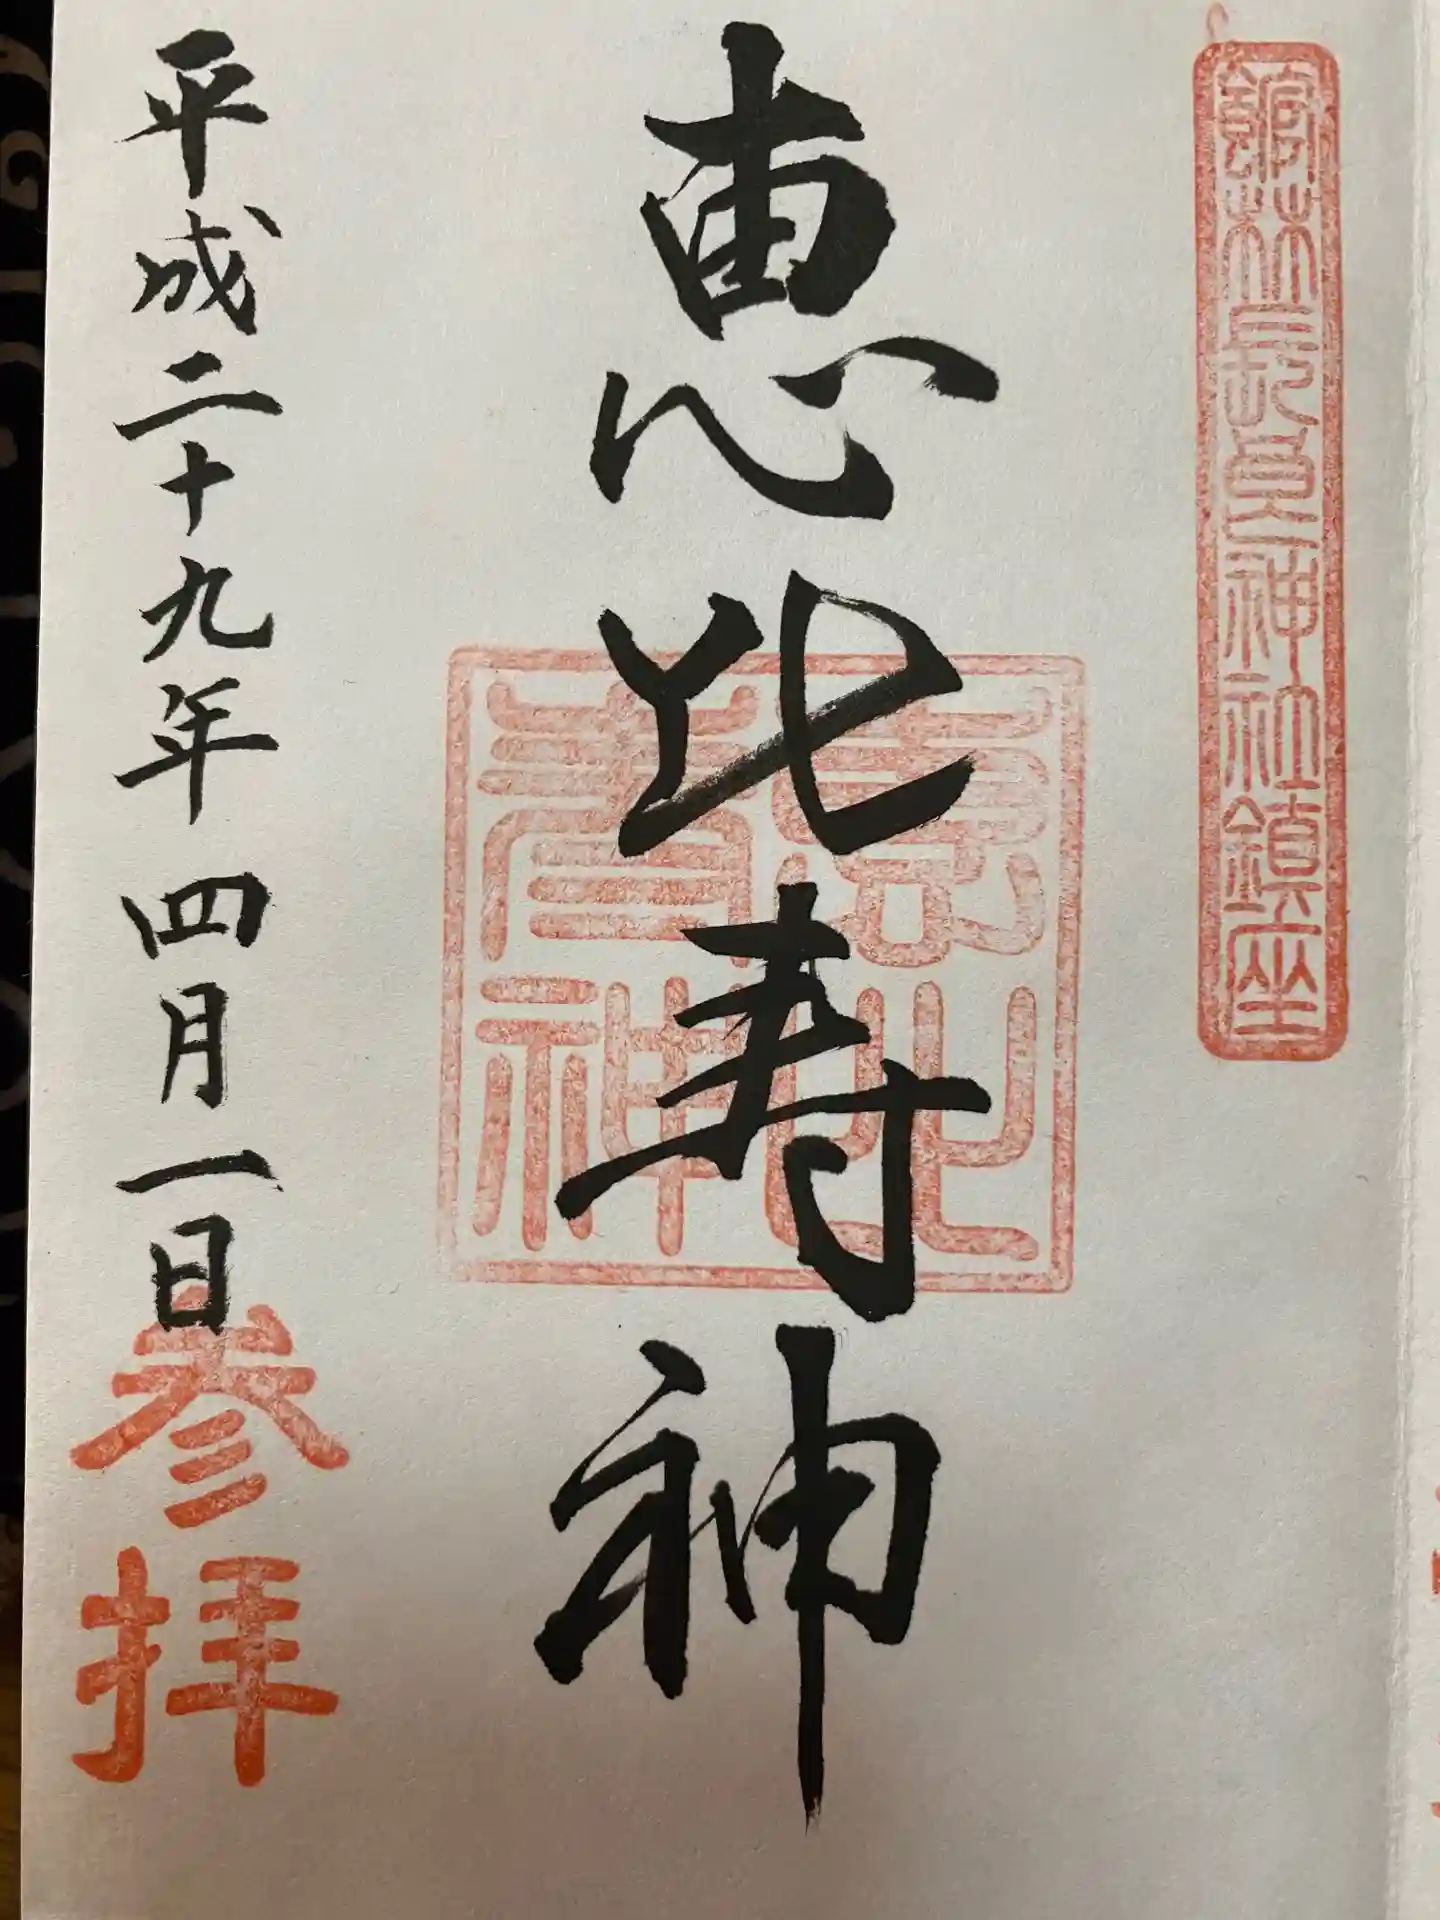 館林長良神社鎮座
恵比寿神
恵比寿神
平成二十九年四月一日
参拝